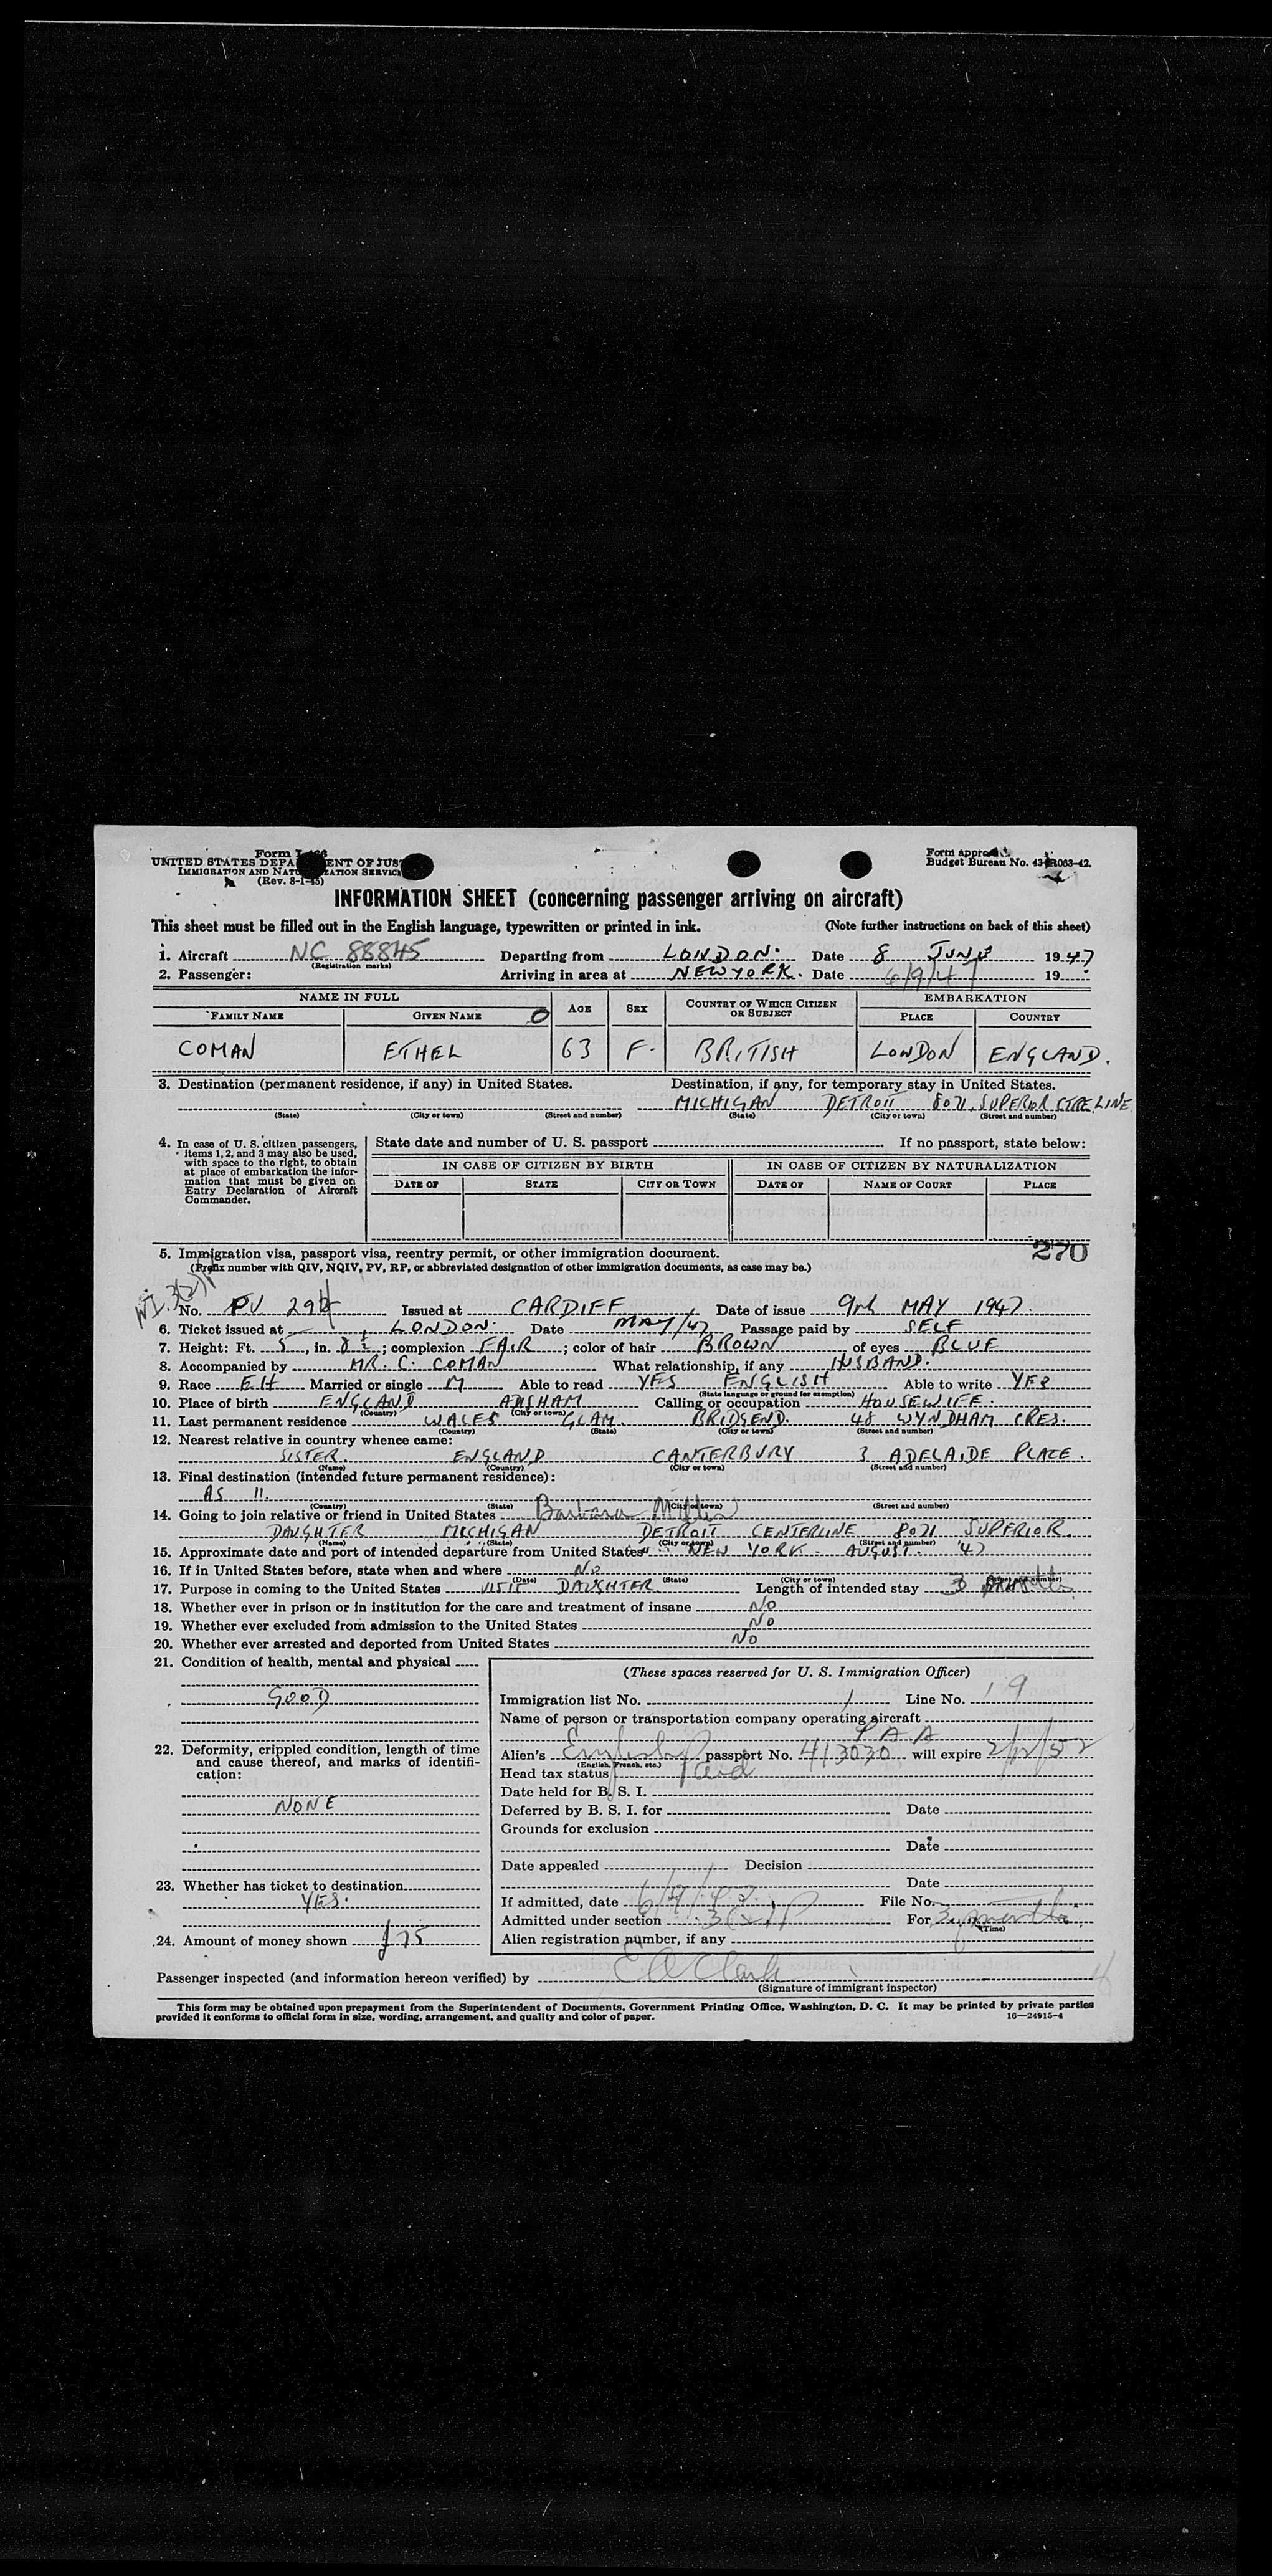 Form I-466
UNITED STATES DEPARTMENT OF JUSTICE
IMMIGRATION AND NATURALIZATION SERVICE
(Rev. 8-1-45)
Form approved
Budget Bureau No. 43-R063-42.
INFORMATION SHEET (concerning passenger arriving on aircraft)
This sheet must be filled out in the English language, typewritten or printed in ink. (Note further instructions on back of this sheet)
1. Aircraft NC 88845 Departing from LONDON. Date 8 JUNE 1947
(Registration marks)
2. Passenger: Arriving in area at NEW YORK. Date 6/9/47 19
NAME IN FULL AGE SEX COUNTRY OF WHICH CITIZEN OR SUBJECT EMBARKATION
FAMILY NAME GIVEN NAME PLACE COUNTRY
COMAN ETHEL 63 F. BRITISH LONDON ENGLAND.
3. Destination (permanent residence, if any) in United States. Destination, if any, for temporary stay in United States.
MICHIGAN DETROIT 8071 SUPERIOR CTRE LINE
(State) (City or town) (Street and number) (State) (City or town) (Street and number)
4. In case of U. S. citizen passengers, items 1, 2, and 3 may also be used, with space to the right, to obtain at place of embarkation the information that must be given on Entry Declaration of Aircraft Commander.
State date and number of U. S. passport If no passport, state below:
IN CASE OF CITIZEN BY BIRTH IN CASE OF CITIZEN BY NATURALIZATION
DATE OF STATE CITY OR TOWN DATE OF NAME OF COURT PLACE
5. Immigration visa, passport visa, reentry permit, or other immigration document. 270
(Prefix number with QIV, NQIV, PV, RP, or abbreviated designation of other immigration documents, as case may be.)
No. PV Issued at CARDIFF Date of issue 9th MAY 1947.
6. Ticket issued at LONDON. Date MAY/47 Passage paid by SELF
7. Height: Ft. 5, in. ; complexion FAIR; color of hair BROWN of eyes BLUE
8. Accompanied by MR. C. COMAN What relationship, if any HUSBAND.
9. Race EH Married or single M Able to read YES ENGLISH Able to write YES
(State language or ground for exemption)
10. Place of birth ENGLAND Calling or occupation HOUSEWIFE.
(Country) (City or town)
11. Last permanent residence WALES GLAM. BRIDGEND. 48 WYNDHAM CRES.
(Country) (State) (City or town) (Street and number)
12. Nearest relative in country whence came:
SISTER. ENGLAND CANTERBURY 3 ADELAIDE PLACE.
(Name) (Country) (City or town) (Street and number)
13. Final destination (intended future permanent residence):
AS 11.
(Country) (State) (City or town) (Street and number)
14. Going to join relative or friend in United States Barbara
DAUGHTER MICHIGAN DETROIT CENTERLINE 8071 SUPERIOR.
(Name) (State) (City or town) (Street and number)
15. Approximate date and port of intended departure from United States NEW YORK - AUGUST. '47
16. If in United States before, state when and where NO
(Date) (State) (City or town) (Street and number)
17. Purpose in coming to the United States VISIT DAUGHTER Length of intended stay 3 months
18. Whether ever in prison or in institution for the care and treatment of insane NO
19. Whether ever excluded from admission to the United States NO
20. Whether ever arrested and deported from United States NO
21. Condition of health, mental and physical
GOOD
22. Deformity, crippled condition, length of time and cause thereof, and marks of identification:
NONE
23. Whether has ticket to destination
YES.
24. Amount of money shown £75
(These spaces reserved for U. S. Immigration Officer)
Immigration list No. 1 Line No. 19
Name of person or transportation company operating aircraft
P A A
Alien's English passport No. 413030 will expire 2/12/52
(English, French, etc.)
Head tax status Paid
Date held for B. S. I.
Deferred by B. S. I. for Date
Grounds for exclusion
Date
Date appealed Decision
Date
If admitted, date 6/9/47 File No.
Admitted under section 3(2) For 3 months
(Time)
Alien registration number, if any
Passenger inspected (and information hereon verified) by E A Clark
(Signature of immigrant inspector)
This form may be obtained upon prepayment from the Superintendent of Documents, Government Printing Office, Washington, D. C. It may be printed by private parties
provided it conforms to official form in size, wording, arrangement, and quality and color of paper. 16—24915-4